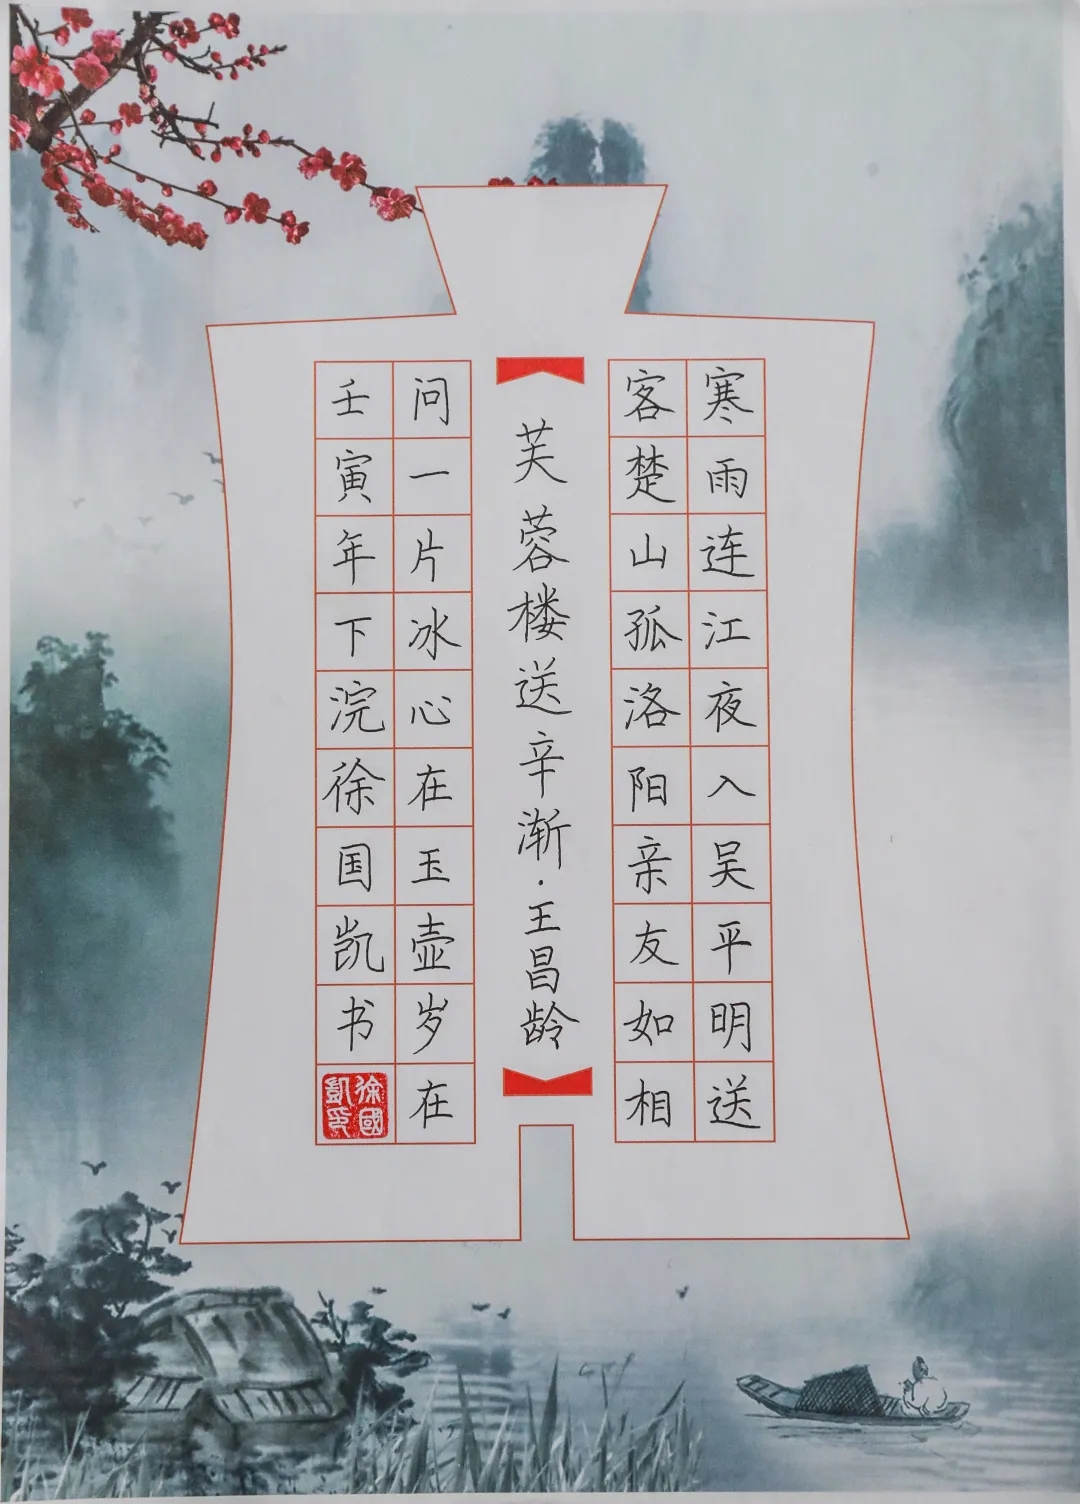 寒雨连江夜入吴平明送
客楚山孤洛阳亲友如相
芙蓉楼送辛渐·王昌龄
问一片冰心在玉壶岁在
壬寅年下浣徐国凯书
徐國凯印